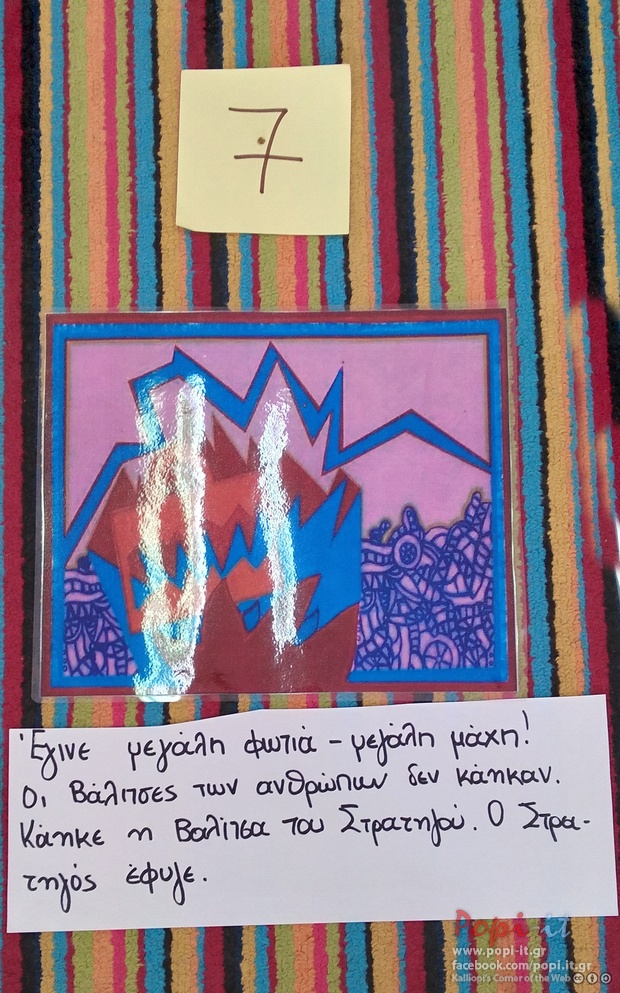 7
Έγινε μεγάλη φωτιά - μεγάλη μάχη!
Οι Βάλιτσες των ανθρώπων δεν κάηκαν.
Κάηκε η Βαλίτσα του Στρατηγού. Ο Στρα-
τηγός έφυγε.
Popi-it
www.popi-it.gr
facebook.com/popi.it.gr
Kalliopi's Corner of the Web